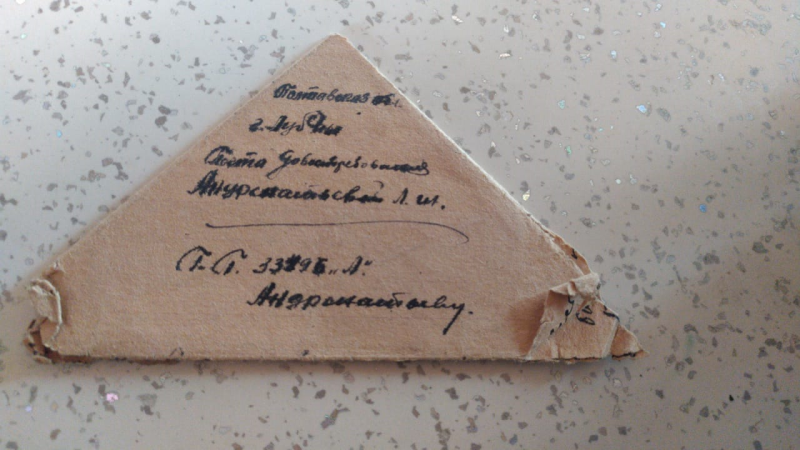 Полтавская обл.
г. Лубны
Почта Довостребования
Л. И.
П-П. 33496 "Л".
Андронатьеву.